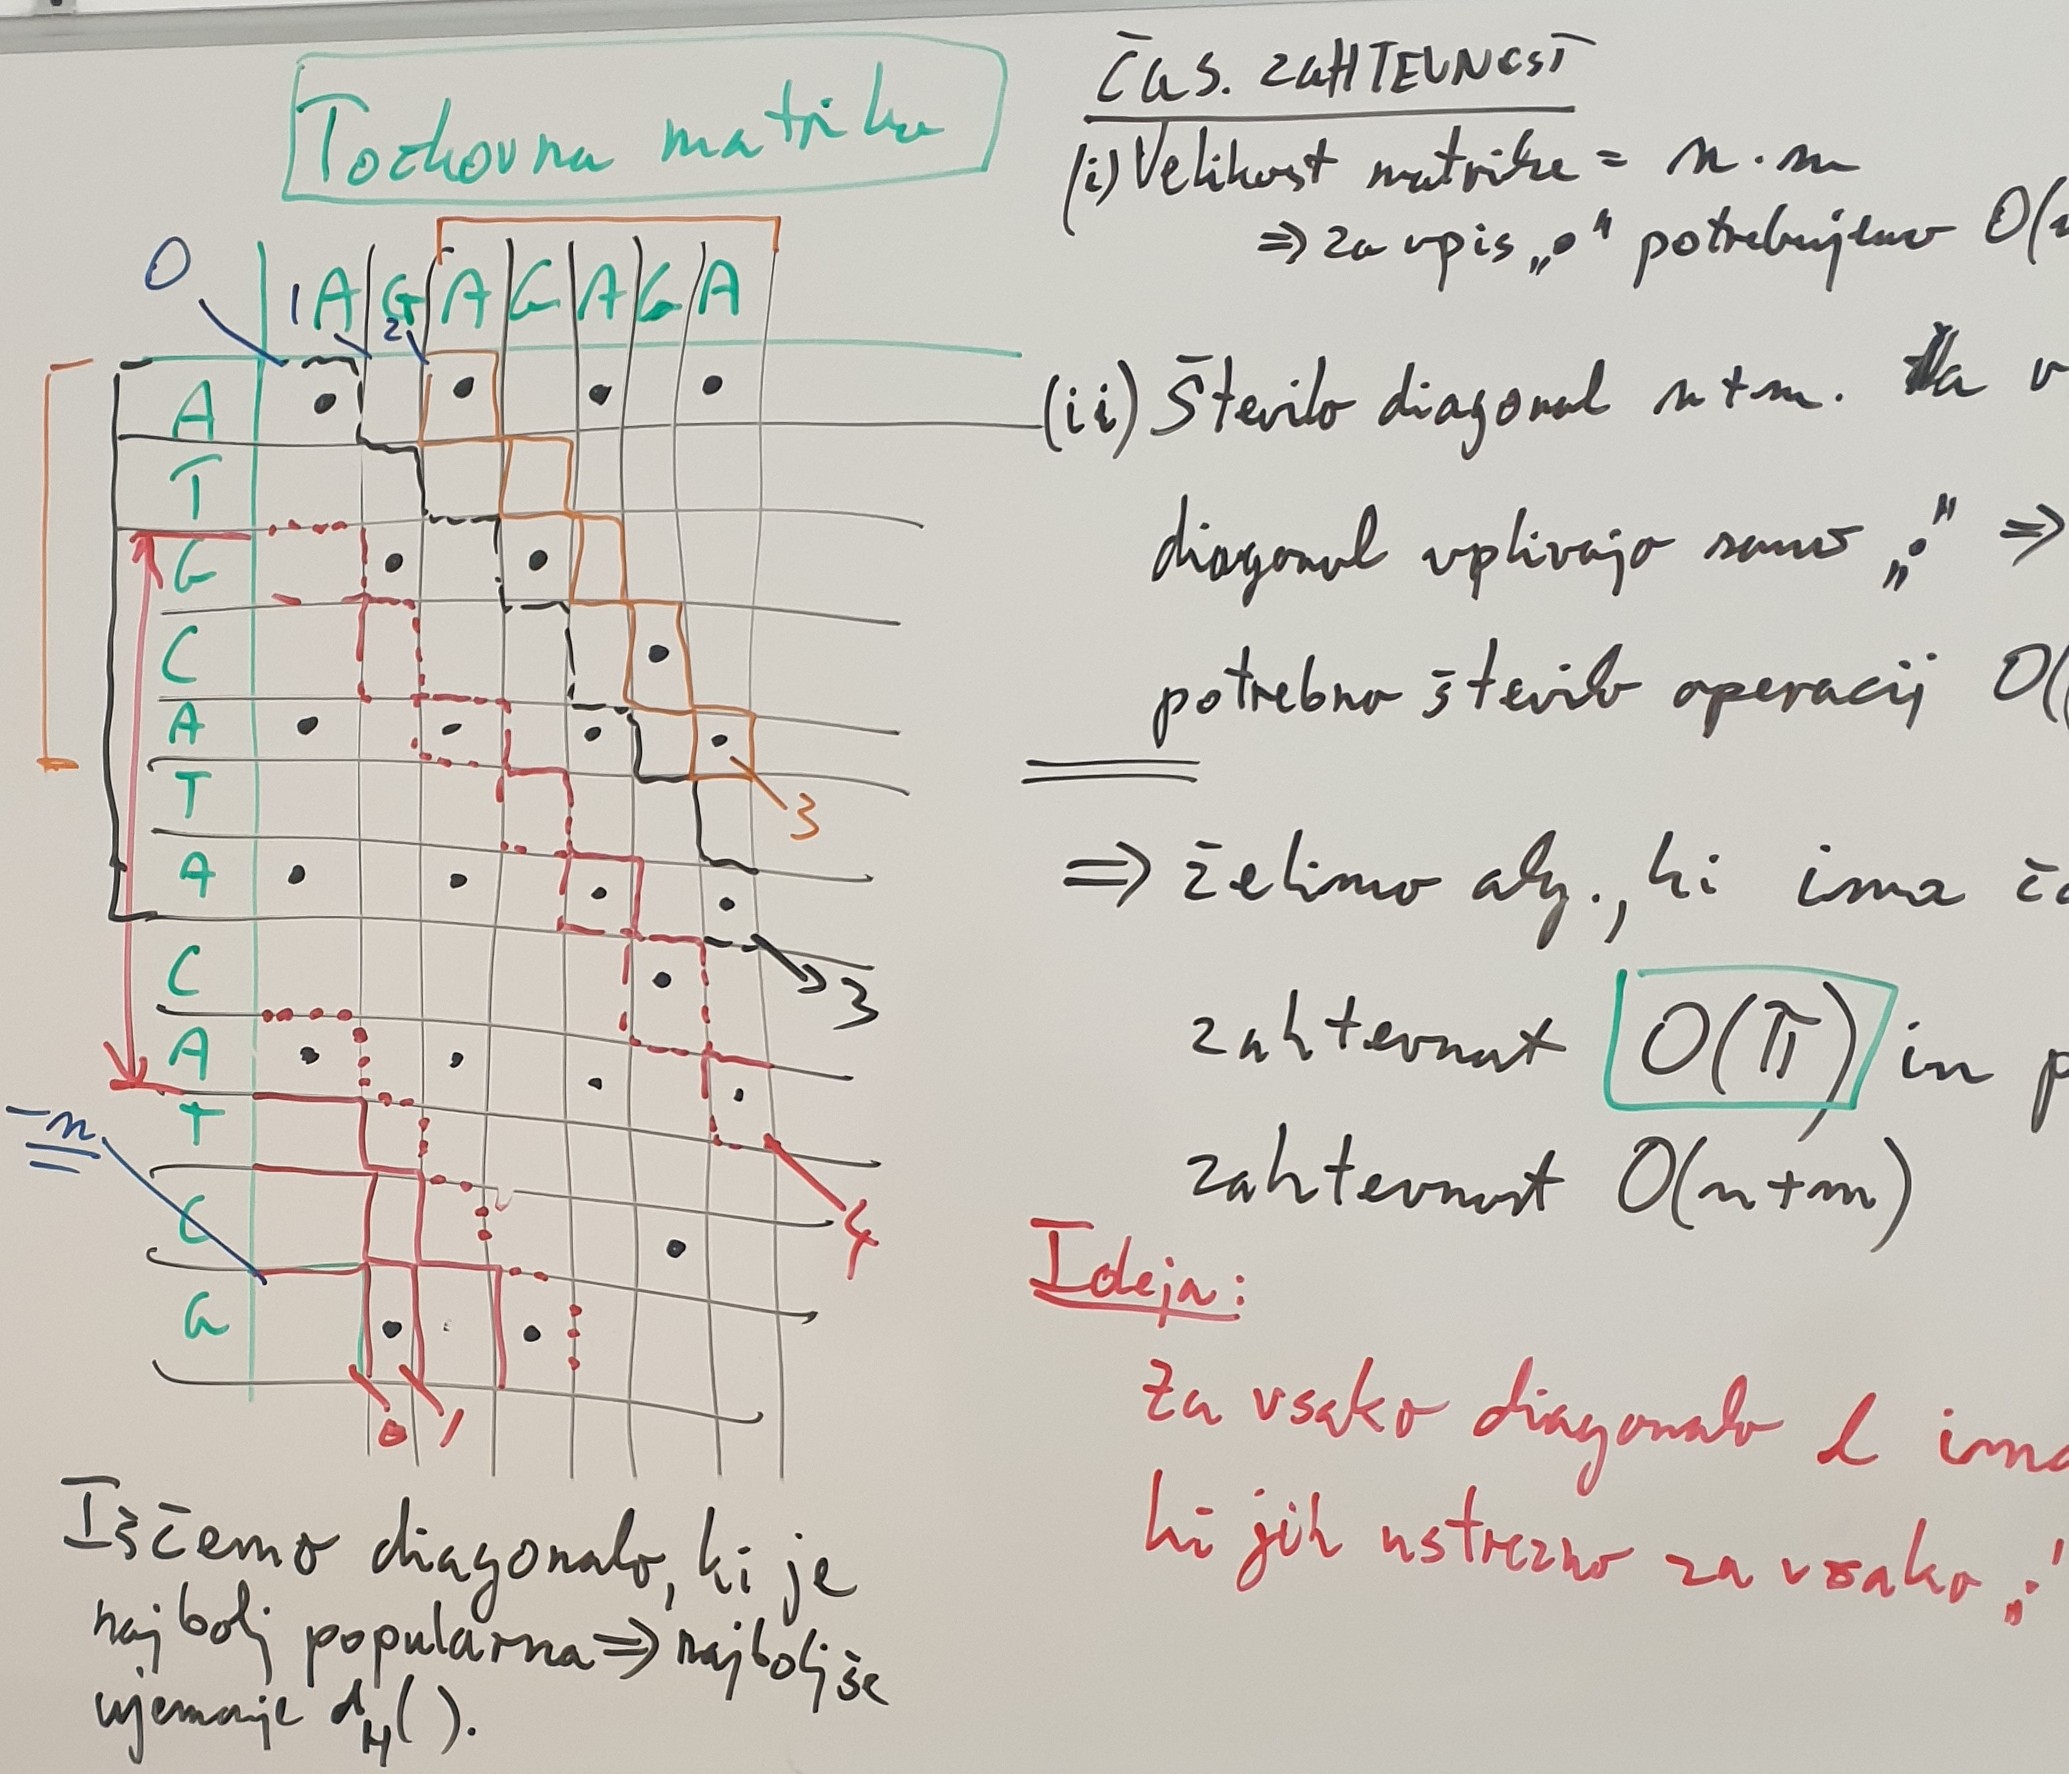 Točkovna matrika
0
1 A G A G A G A
2
A
T
G
C
A
T
3
A
C
3
A
-n
T
C
4
G
0 1
Iščemo diagonalo, ki je
najbolj popularna => najboljše
ujemanje dH().
ČAS. ZAHTEVNOST
(i) Velikost matrike = n·m
=> za vpis „•" potrebujemo O(n
(ii) Število diagonal n+m. Na v
diagonal vplivajo samo „•" =>
potrebno število operacij O(
=> želimo alg., ki ima ča
zahtevnost O(π) in p
zahtevnost O(n+m)
Ideja:
za vsako diagonalo l ima
ki jih ustrezno za vsako „•